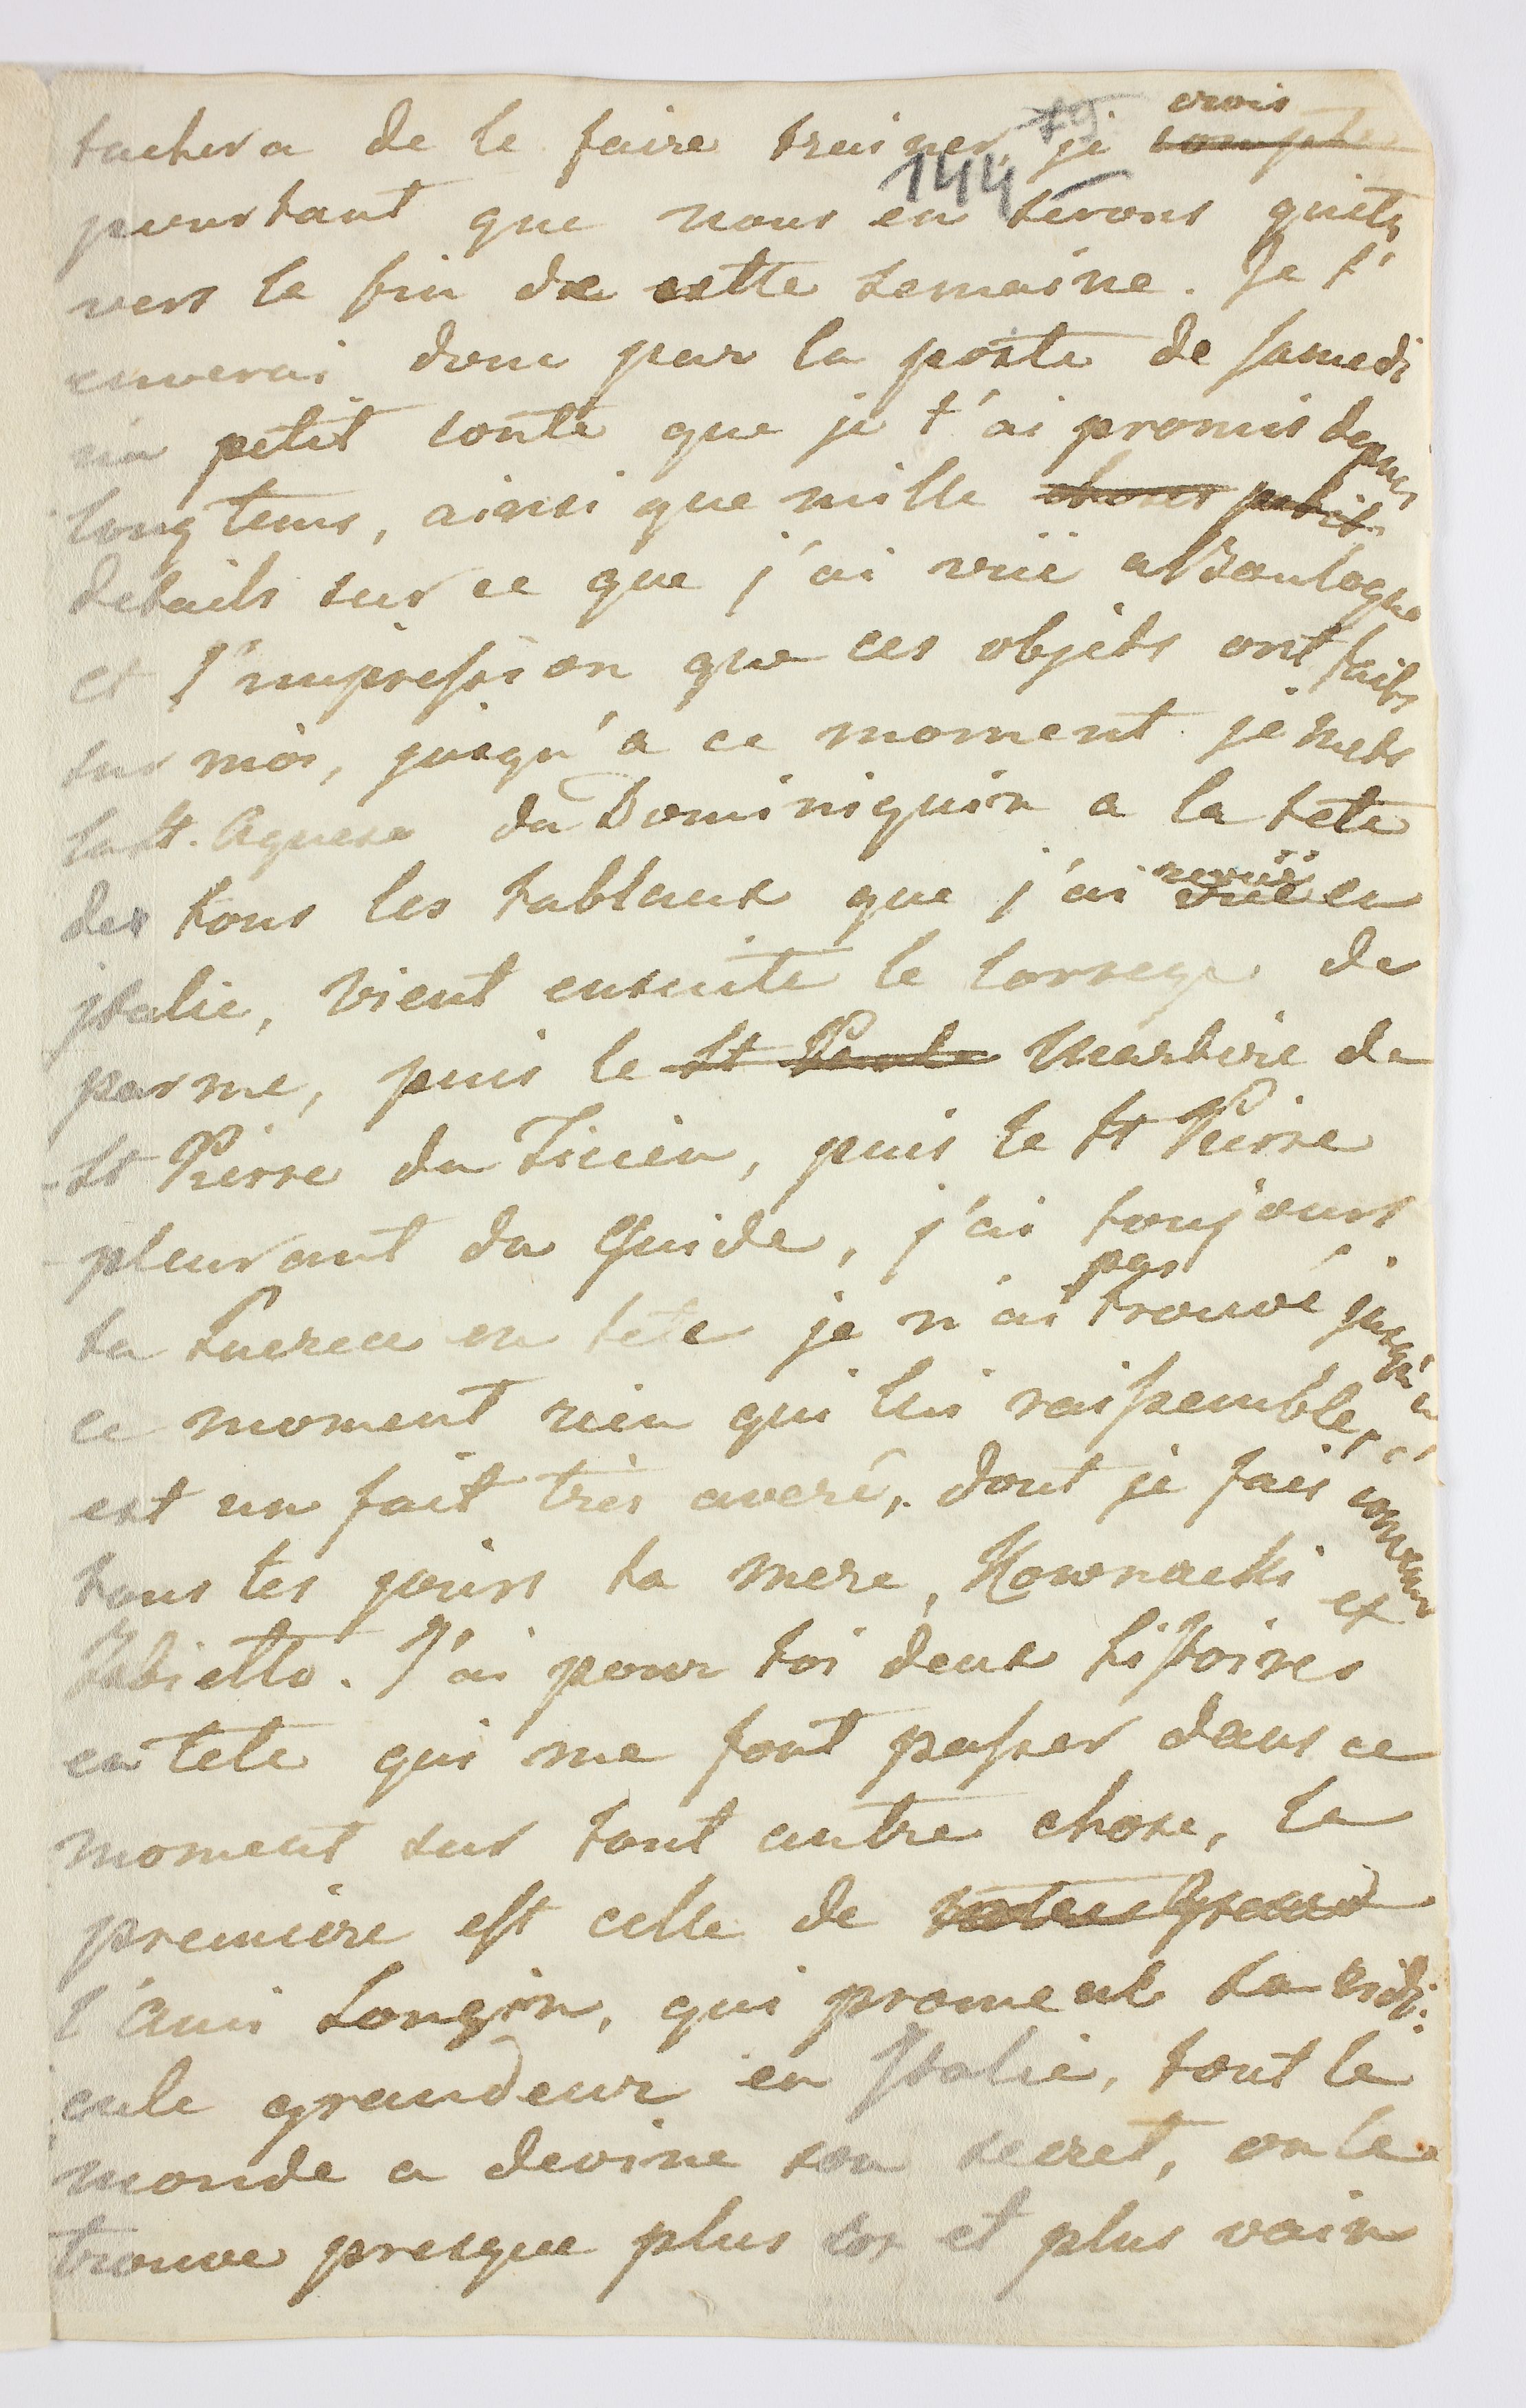 crois
tachera de le faire trainer, je compte
79
144
pourtant que nous en serons quits
vers la fin de cette semaine. Je t'
enverai donc par la poste de samedi
un petit conte que je t'ai promis depuis
longtems, ainsi que mille choses petits
details sur ce que j'ai vüe a Boulogne
et l'impression que ces objets ont faits
sur moi, jusqu'a ce moment je mets
la St. Agnese du Dominiquin a la tete
des tous les tableaux que j'ai revüe vüe en
jtalie, vient ensuite le Correge de
parme, puis le St Martire de
St Pierre du Ticien, puis le St Pierre
pleurant du Guide, j'ai toujours
ta Lucrece en tete je n'ai pas trouvé jusqu'a
ce moment rien qui lui raissemble, c'
est un fait très averé, dont je fais convenir
tous les jours ta mere, Kownacki et
Isbietto. J'ai pour toi deux histoires
en tete qui me font passer dans ce
moment sur tout autre chose, la
premiere est celle de
l'Ami Longin, qui promene sa ridi-
cule grandeur en Jtalie, tout le
monde a devine son secret, on le
trouve presque plus sot et plus vain